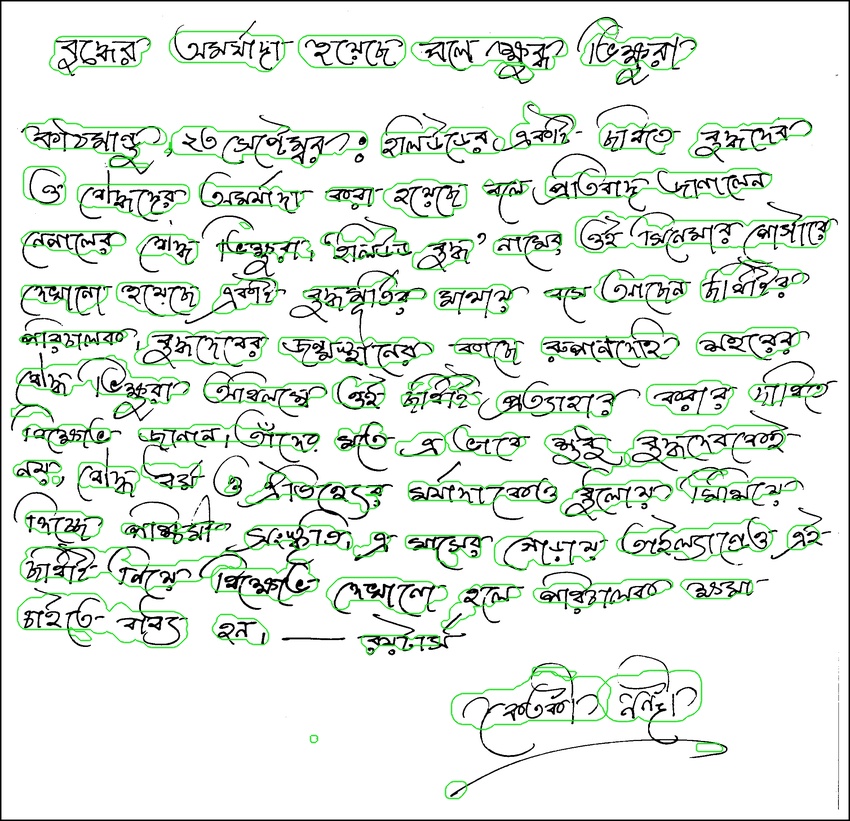 বুদ্ধের অমর্যাদা হয়েছে বলে ক্ষুব্ধ ভিক্ষুরা
কাঠমান্ডু, ২৩ সেপ্টেম্বর : হলিউডের একটি ছবিতে বুদ্ধদেব
ও বৌদ্ধদের অমর্যাদা করা হয়েছে বলে প্রতিবাদ জানালেন
নেপালের বৌদ্ধ ভিক্ষুরা। 'হলিউড বুদ্ধ' নামের ওই সিনেমার পোস্টারে
দেখানো হয়েছে একটি বুদ্ধমূর্তির মাথায় বসে আছেন ছবিটির
পরিচালক। বুদ্ধদেবের জন্মস্থানের কাছে রুপানদেহি শহরের
বৌদ্ধ ভিক্ষুরা অবিলম্বে ওই ছবিটি প্রত্যাহার করার দাবিতে
বিক্ষোভ জানান। তাঁদের মতে এ ভাবে শুধু বুদ্ধদেবকেই
নয়, বৌদ্ধ ধর্ম ও ঐতিহ্যের মর্যাদাকেও ধুলোয় মিশিয়ে
দিচ্ছে পশ্চিমী সংস্কৃতি। এ মাসের গোড়ায় তাইল্যাণ্ডেও এই
ছবিটি নিয়ে বিক্ষোভ দেখানো হলে পরিচালক ক্ষমা
চাইতে বাধ্য হন। —— রয়টার্স
কেতকী নন্দী